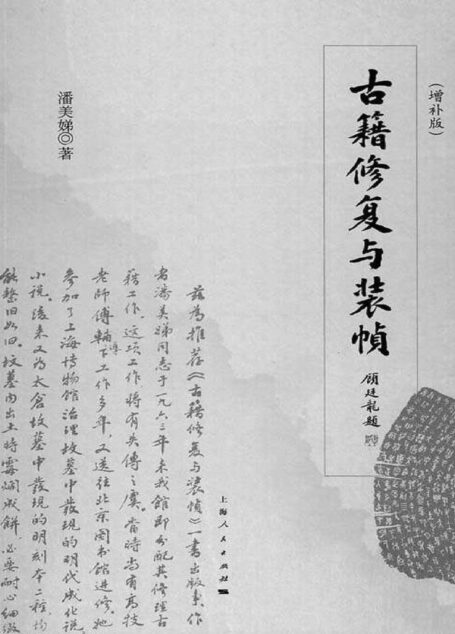 (增补版)
古籍修复与装帧
顾廷龙题
潘美娣◎著
兹为推荐《古籍修复与装帧》一书出版,作
者潘美娣同志于一九六三年来我馆即分配其修理古
籍工作。这项工作将有失传之虞。当时尚有高技
老师傅辅导下工作多年,又送往北京图书馆进修。她
参加了上海博物馆治理坟墓中发现的明代成化说
小说。后来又为太仓坟墓中发现的明刻本二种,均
能整旧如旧。坟墓内出土时霉烂成饼,必要耐心细微
上海人民出版社